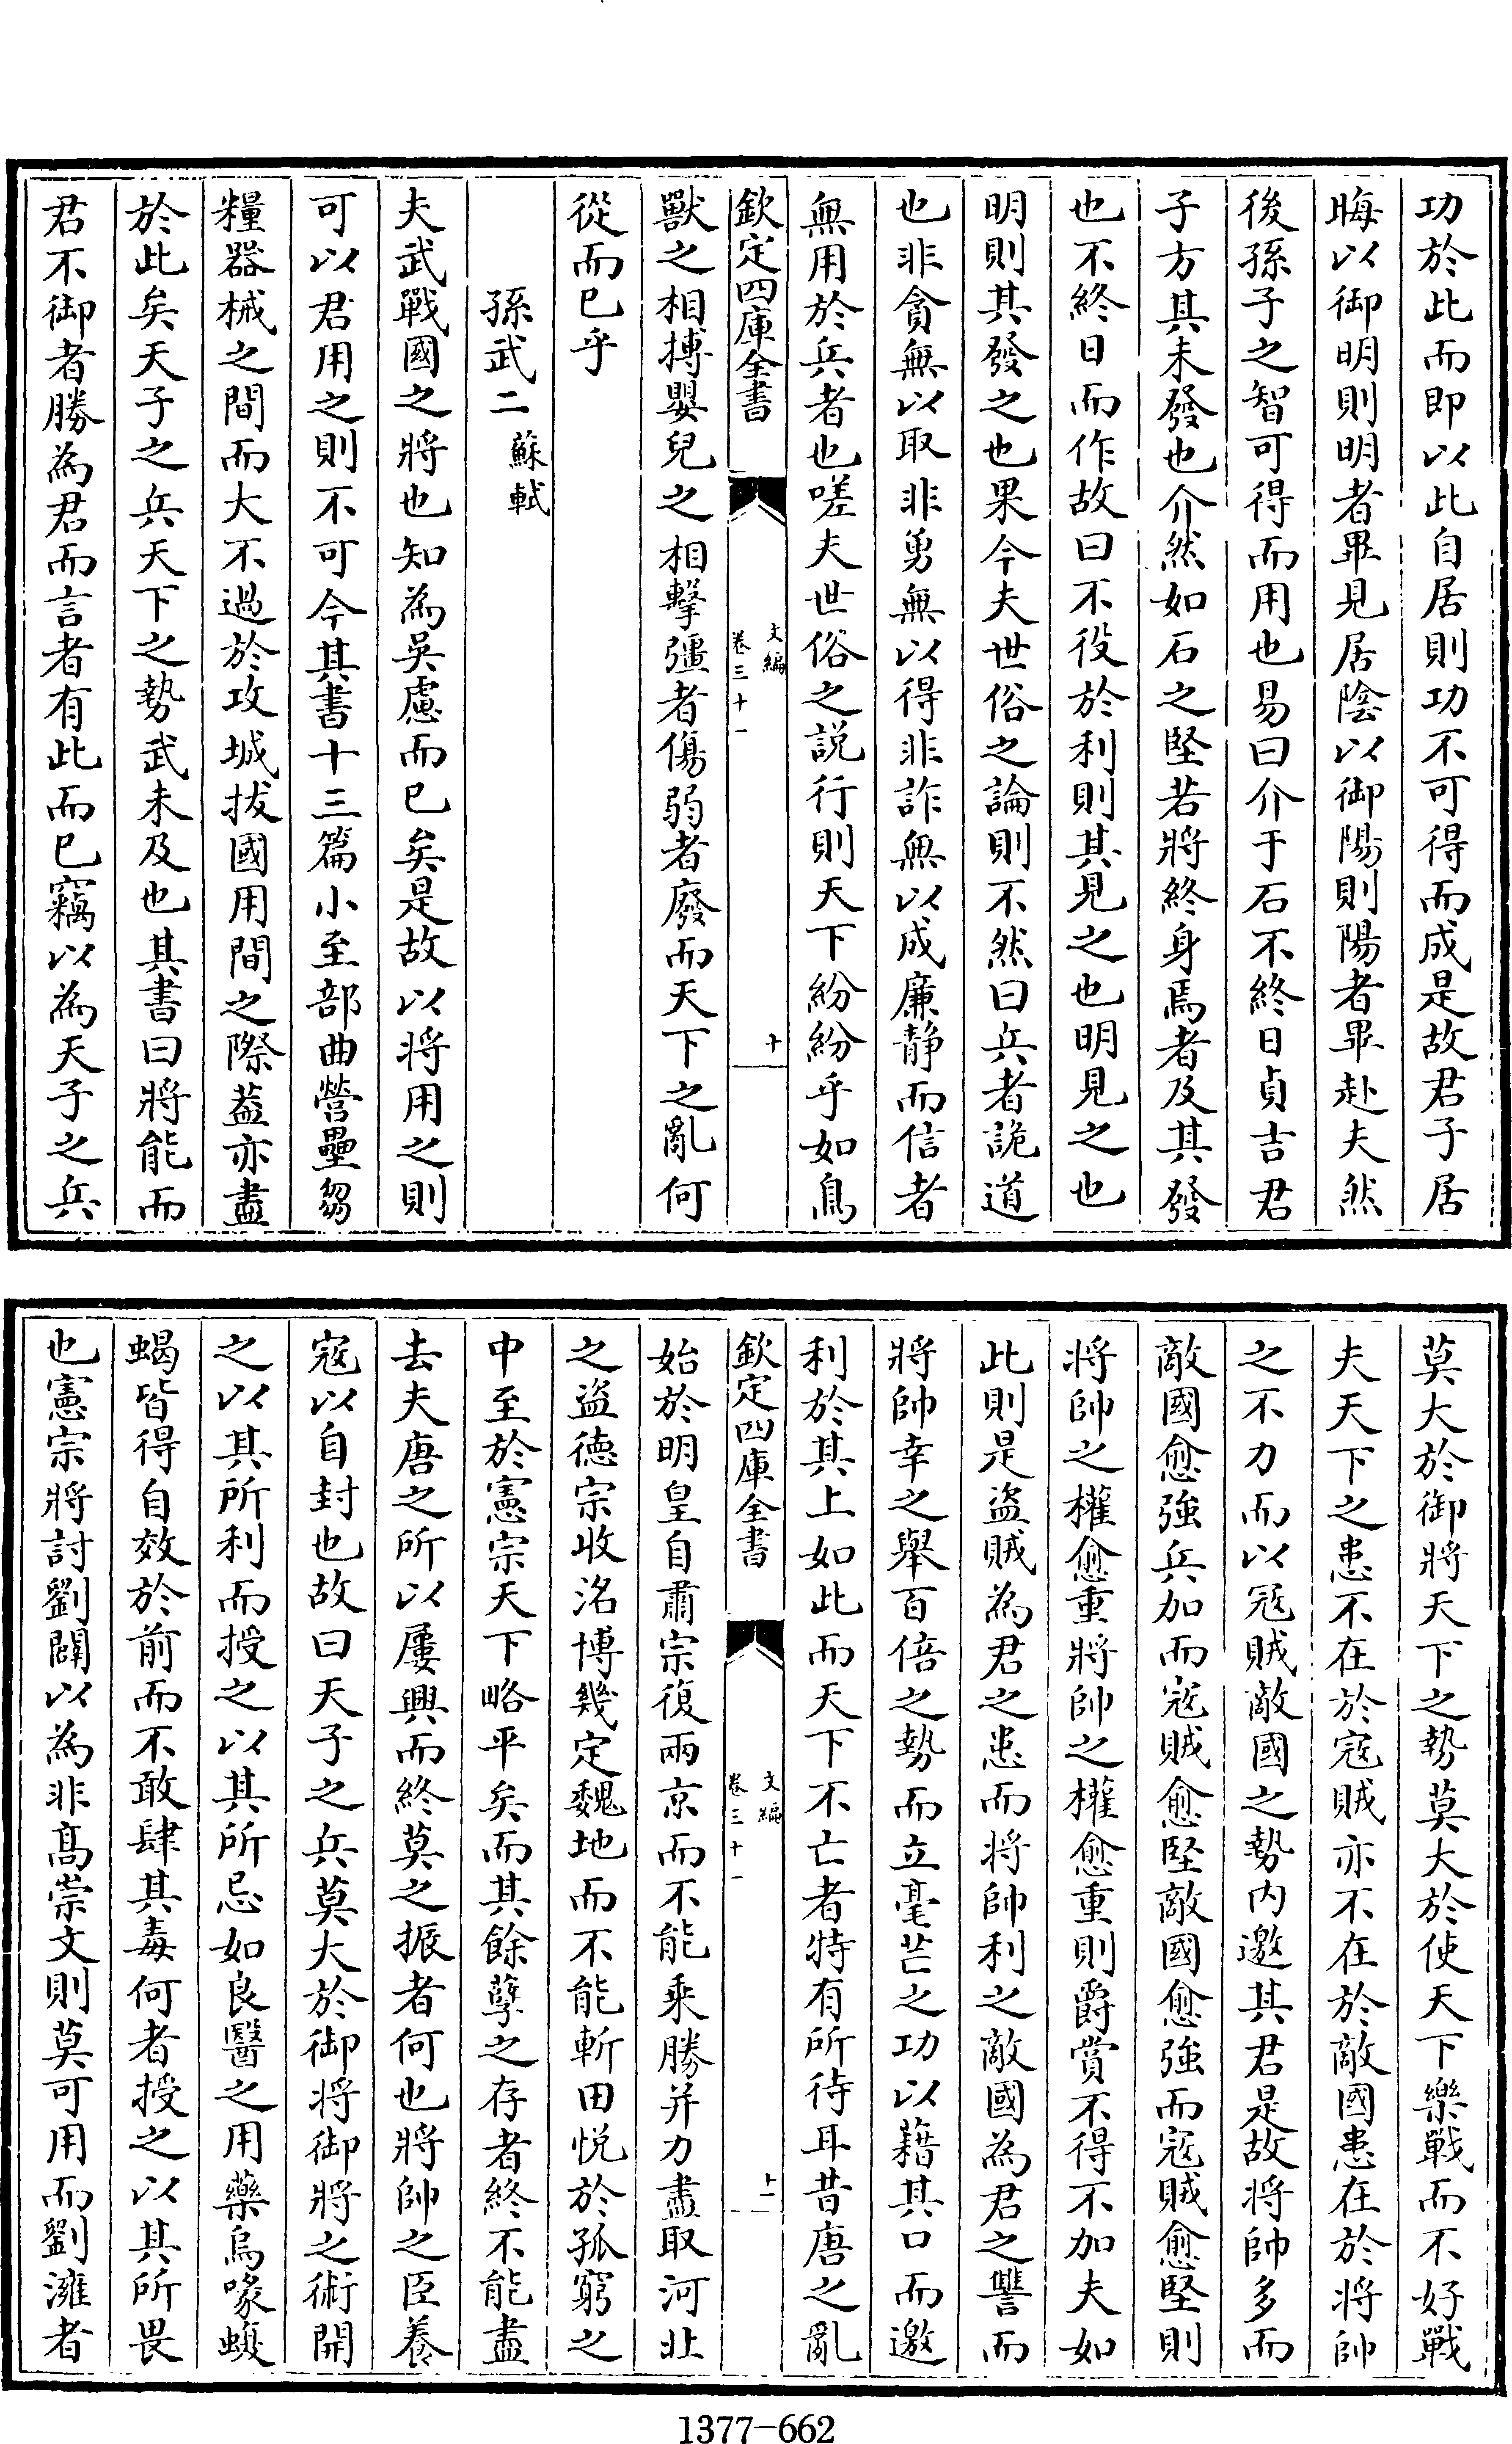 功於此而即以此自居則功不可得而成是故君子居
晦以御明則明者畢見居陰以御陽則陽者畢赴夫然
後孫子之智可得而用也易曰介于石不終日貞吉君
子方其未發也介然如石之堅若將終身焉者及其發
也不終日而作故曰不役於利則其見之也明見之也
明則其發之也果今夫世俗之論則不然曰兵者詭道
也非貪無以取非勇無以得非詐無以成廉静而信者
無用於兵者也嗟夫世俗之説行則天下紛紛乎如鳥
欽定四庫全書
文編
卷三十一
十
獸之相搏嬰兒之相擊彊者傷弱者廢而天下之亂何
從而已乎
孫武二 蘇軾
夫武戰國之將也知為吳慮而已矣是故以將用之則
可以君用之則不可今其書十三篇小至部曲營壘芻
糧器械之間而大不過於攻城拔國用間之際葢亦盡
於此矣天子之兵天下之勢武未及也其書曰將能而
君不御者勝為君而言者有此而已竊以為天子之兵
莫大於御將天下之勢莫大於使天下樂戰而不好戰
夫天下之患不在於寇賊亦不在於敵國患在於將帥
之不力而以寇賊敵國之勢内邀其君是故將帥多而
敵國愈強兵加而寇賊愈堅敵國愈強而寇賊愈堅則
將帥之權愈重將帥之權愈重則爵賞不得不加夫如
此則是盜賊為君之患而將帥利之敵國為君之讐而
將帥幸之舉百倍之勢而立毫芒之功以藉其口而邀
利於其上如此而天下不亡者特有所待耳昔唐之亂
欽定四庫全書
文編
卷三十一
十一
始於明皇自肅宗復兩京而不能乘勝并力盡取河北
之盜徳宗收洺博幾定魏地而不能斬田悦於孤窮之
中至於憲宗天下略平矣而其餘孽之存者終不能盡
去夫唐之所以屢興而終莫之振者何也將帥之臣養
寇以自封也故曰天子之兵莫大於御將御將之術開
之以其所利而授之以其所忌如良醫之用藥烏喙蝮
蝎皆得自效於前而不敢肆其毒何者授之以其所畏
也憲宗將討劉闢以為非髙崇文則莫可用而劉澭者
1377-662